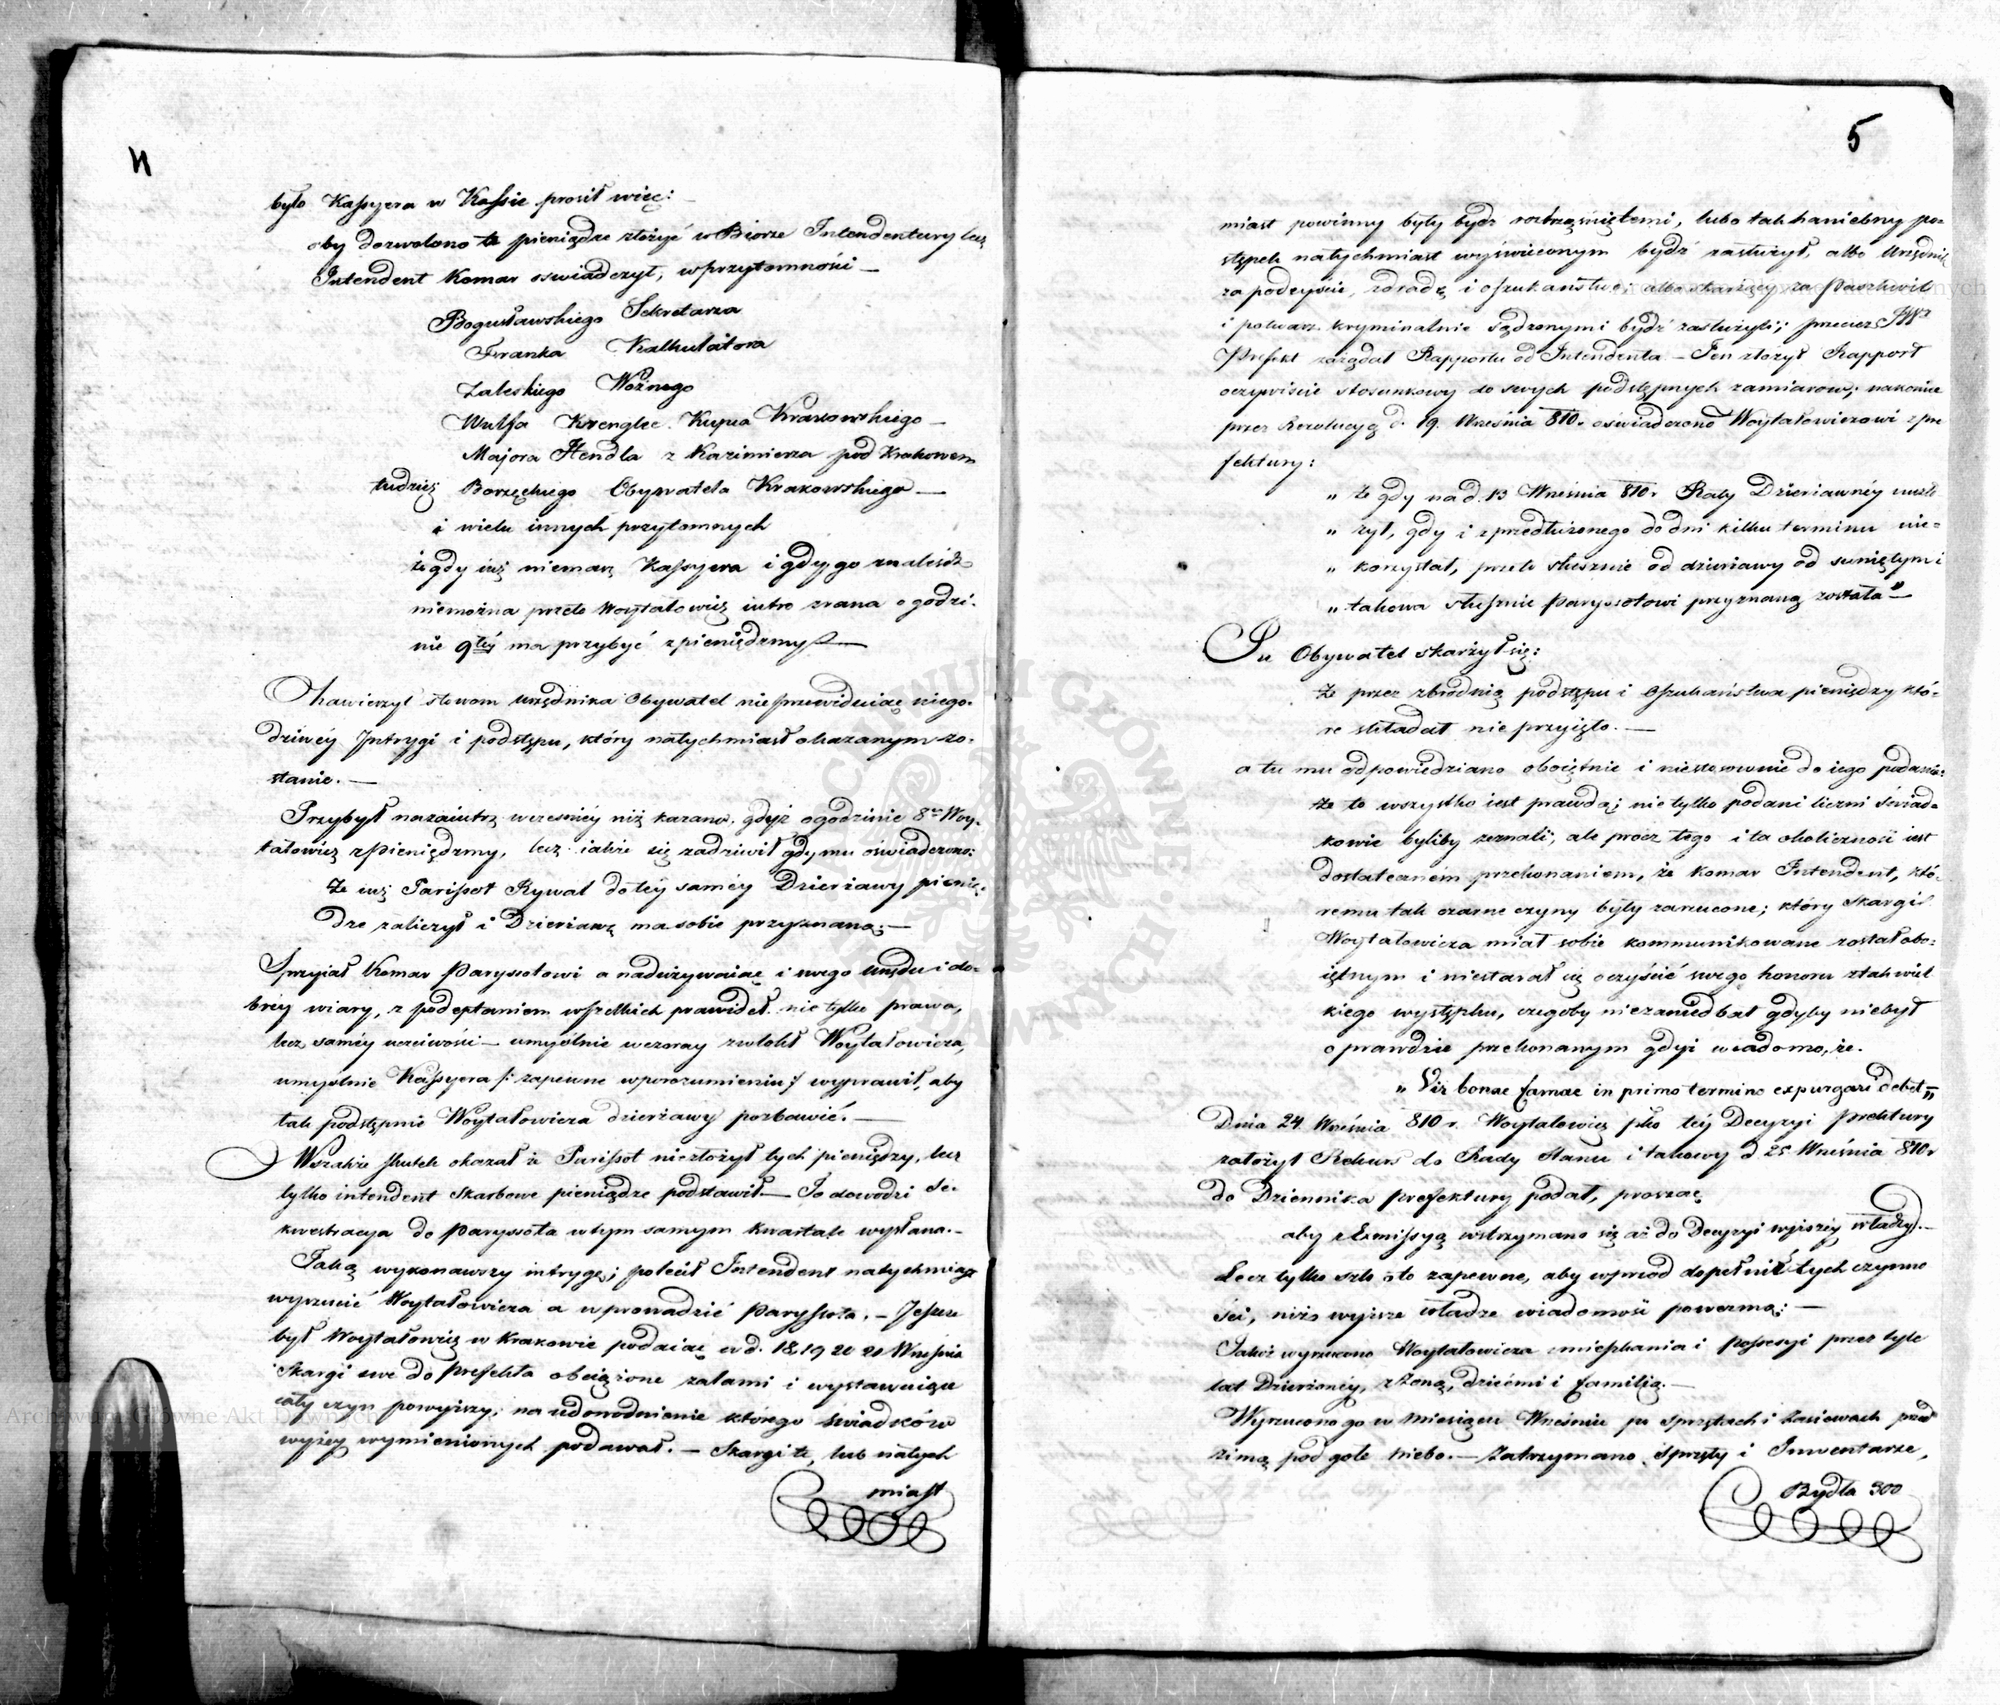 4
było Kassyera w Kassie prosił więc:
aby dozwolono te pieniądze złożyć w Biorze Intendentury lecz
Intendent Komar oświadczył, w przytomności —
Bogusławskiego Sekretarza
Franka Kalkulatora
Zaleskiego Woźnego
Wulfa Kupca Krakowskiego —
Majora Hendla z Kazimierza pod Krakowem
tudzież Borzęckiego Obywatela Krakowskiego —
i wielu innych przytomnych
że gdy już niemasz Kassyera i gdy go znaleść
niemożna przeto Woytałowicz jutro zrana o godzi-
nie 9tey ma przybyć z pieniędzmi —
Zawierzył słowom urzędnika Obywatel nieprzewiduiąc niego-
dziwéy Intrygi i podstępu, który natychmiast okazanym zo-
stanie. —
Przybył nazaiutrz wcześniéy niż kazano, gdyż o godzinie 8ej Woy-
tałowicz z pieniędzmy, lecz jakże się zadziwił gdy mu oświadczono:
że już Parissot Rywal do téy saméy Dzierżawy pienią-
dze zaliczył i Dzierżawę ma sobie przyznaną; —
Sprzyiał Komar Paryssotowi a nadużywaiąc i swego urzędu i do-
bréy wiary, z podeptaniem wszelkich prawideł nie tylko prawa,
lecz saméy uczciwości — umyślnie wczoray zwlókł Woytałowicza,
umyślnie Kassyera /: zapewne w porozumieniu :/ wyprawił, aby
tak podstępnie Woytałowicza dzierżawy pozbawić. —
Wszakże skutek okazał że Parissot niezłożył tych pieniędzy, lecz
tylko intendent Skarbowe pieniądze podstawił — To dowodzi Se-
kwestracya do Paryssota w tym samym kwartale wysłana. —
Taką wykonawszy intrygę; polecił Intendent natychmiast
wyrzucić Woytałowicza a wprowadzić Paryssota. — Jeszcze
był Woytałowicz w Krakowie podaiąc w d. 18, 19 20 21 Września
Skargi swe do Prefekta obciążone żalami i wystawuiące
cały czyn powyższy; na udowodnienie którego świadków
wyżey wymienionych podawał. — Skargi te, lub natych
miast
5
miast powinny były bydź roztrząśniętemi, lubo tak haniebny po-
stępek natychmiast wyświeconym bydź zasłużył, albo Urzędnik
za podeyście, zdradę i oszukaństwo; albo skarżący za Paszkwil
i potwarz kryminalnie sądzonymi bydź zasłużyli; przecież JW
Prefekt zażądał Rapportu od Intendenta — Ten złożył Rapport
oczywiście stosunkowy do swych podstępnych zamiarów; nakoniec
przez Rezolucyą d. 19. Września 810. oświadczono Woytałowiczowi z pre
fektury:
„ że gdy na d. 13 Września 810 r Raty Dzierżawnéy niezło
„ żył, gdy i z przedłużonego do dni kilku terminu nie-
„ korzystał, przeto słusznie od dzierżawy od suniętym i
„ takowa słusznie Paryssotowi przyznaną została" —
Tu Obywatel skarżył się:
że przez zbrodnią podstępu i oszukaństwa pieniędzy któ-
re składał nie przyięto. —
a tu mu odpowiedziano oboiętnie i niestosownie do iego podania:
że to wszystko iest prawdą; nie tylko podani liczni świad-
kowie byliby zeznali; ale prócz tego i ta okoliczność iest
dostatecznem przekonaniem, że Komar Intendent, któ-
remu tak czarne czyny były zarzucone; który Skargi
Woytałowicza miał sobie kommunikowane został obo-
iętnym i niestarał się oczyścić swego honoru z tak wiel-
kiego występku, czegoby niezaniedbał gdyby niebył
o prawdzie przekonanym gdyż wiadomo, że.
„ Vir bonae famae in primo termino expurgari debet „
Dnia 24 Września 810 r. Woytałowicz pko téy Decyzyi Prefektury
założył Rekurs do Rady Stanu i takowy d 25 Września 810 r
do Dziennika Prefektury podał, prosząc
aby z Exmissyą wstrzymano się aż do Decyzyi wyższéy władzy. —
Lecz tylko szło o to zapewne, aby wprzód dopełnić tych czynno
ści, niż wyższe władze wiadomość powezmą; —
Jakoż wyrzucono Woytałowicza z mieszkania i possessyi przez tyle
lat Dzierżonéy, z Żoną, dziećmi i familią. —
Wyrzucono go w miesiącu Wrześniu po sprzętach i zasiewach przed
zimą pod gołe niebo. — Zatrzymano Sprzęty i Inwentarze,
Bydła 300